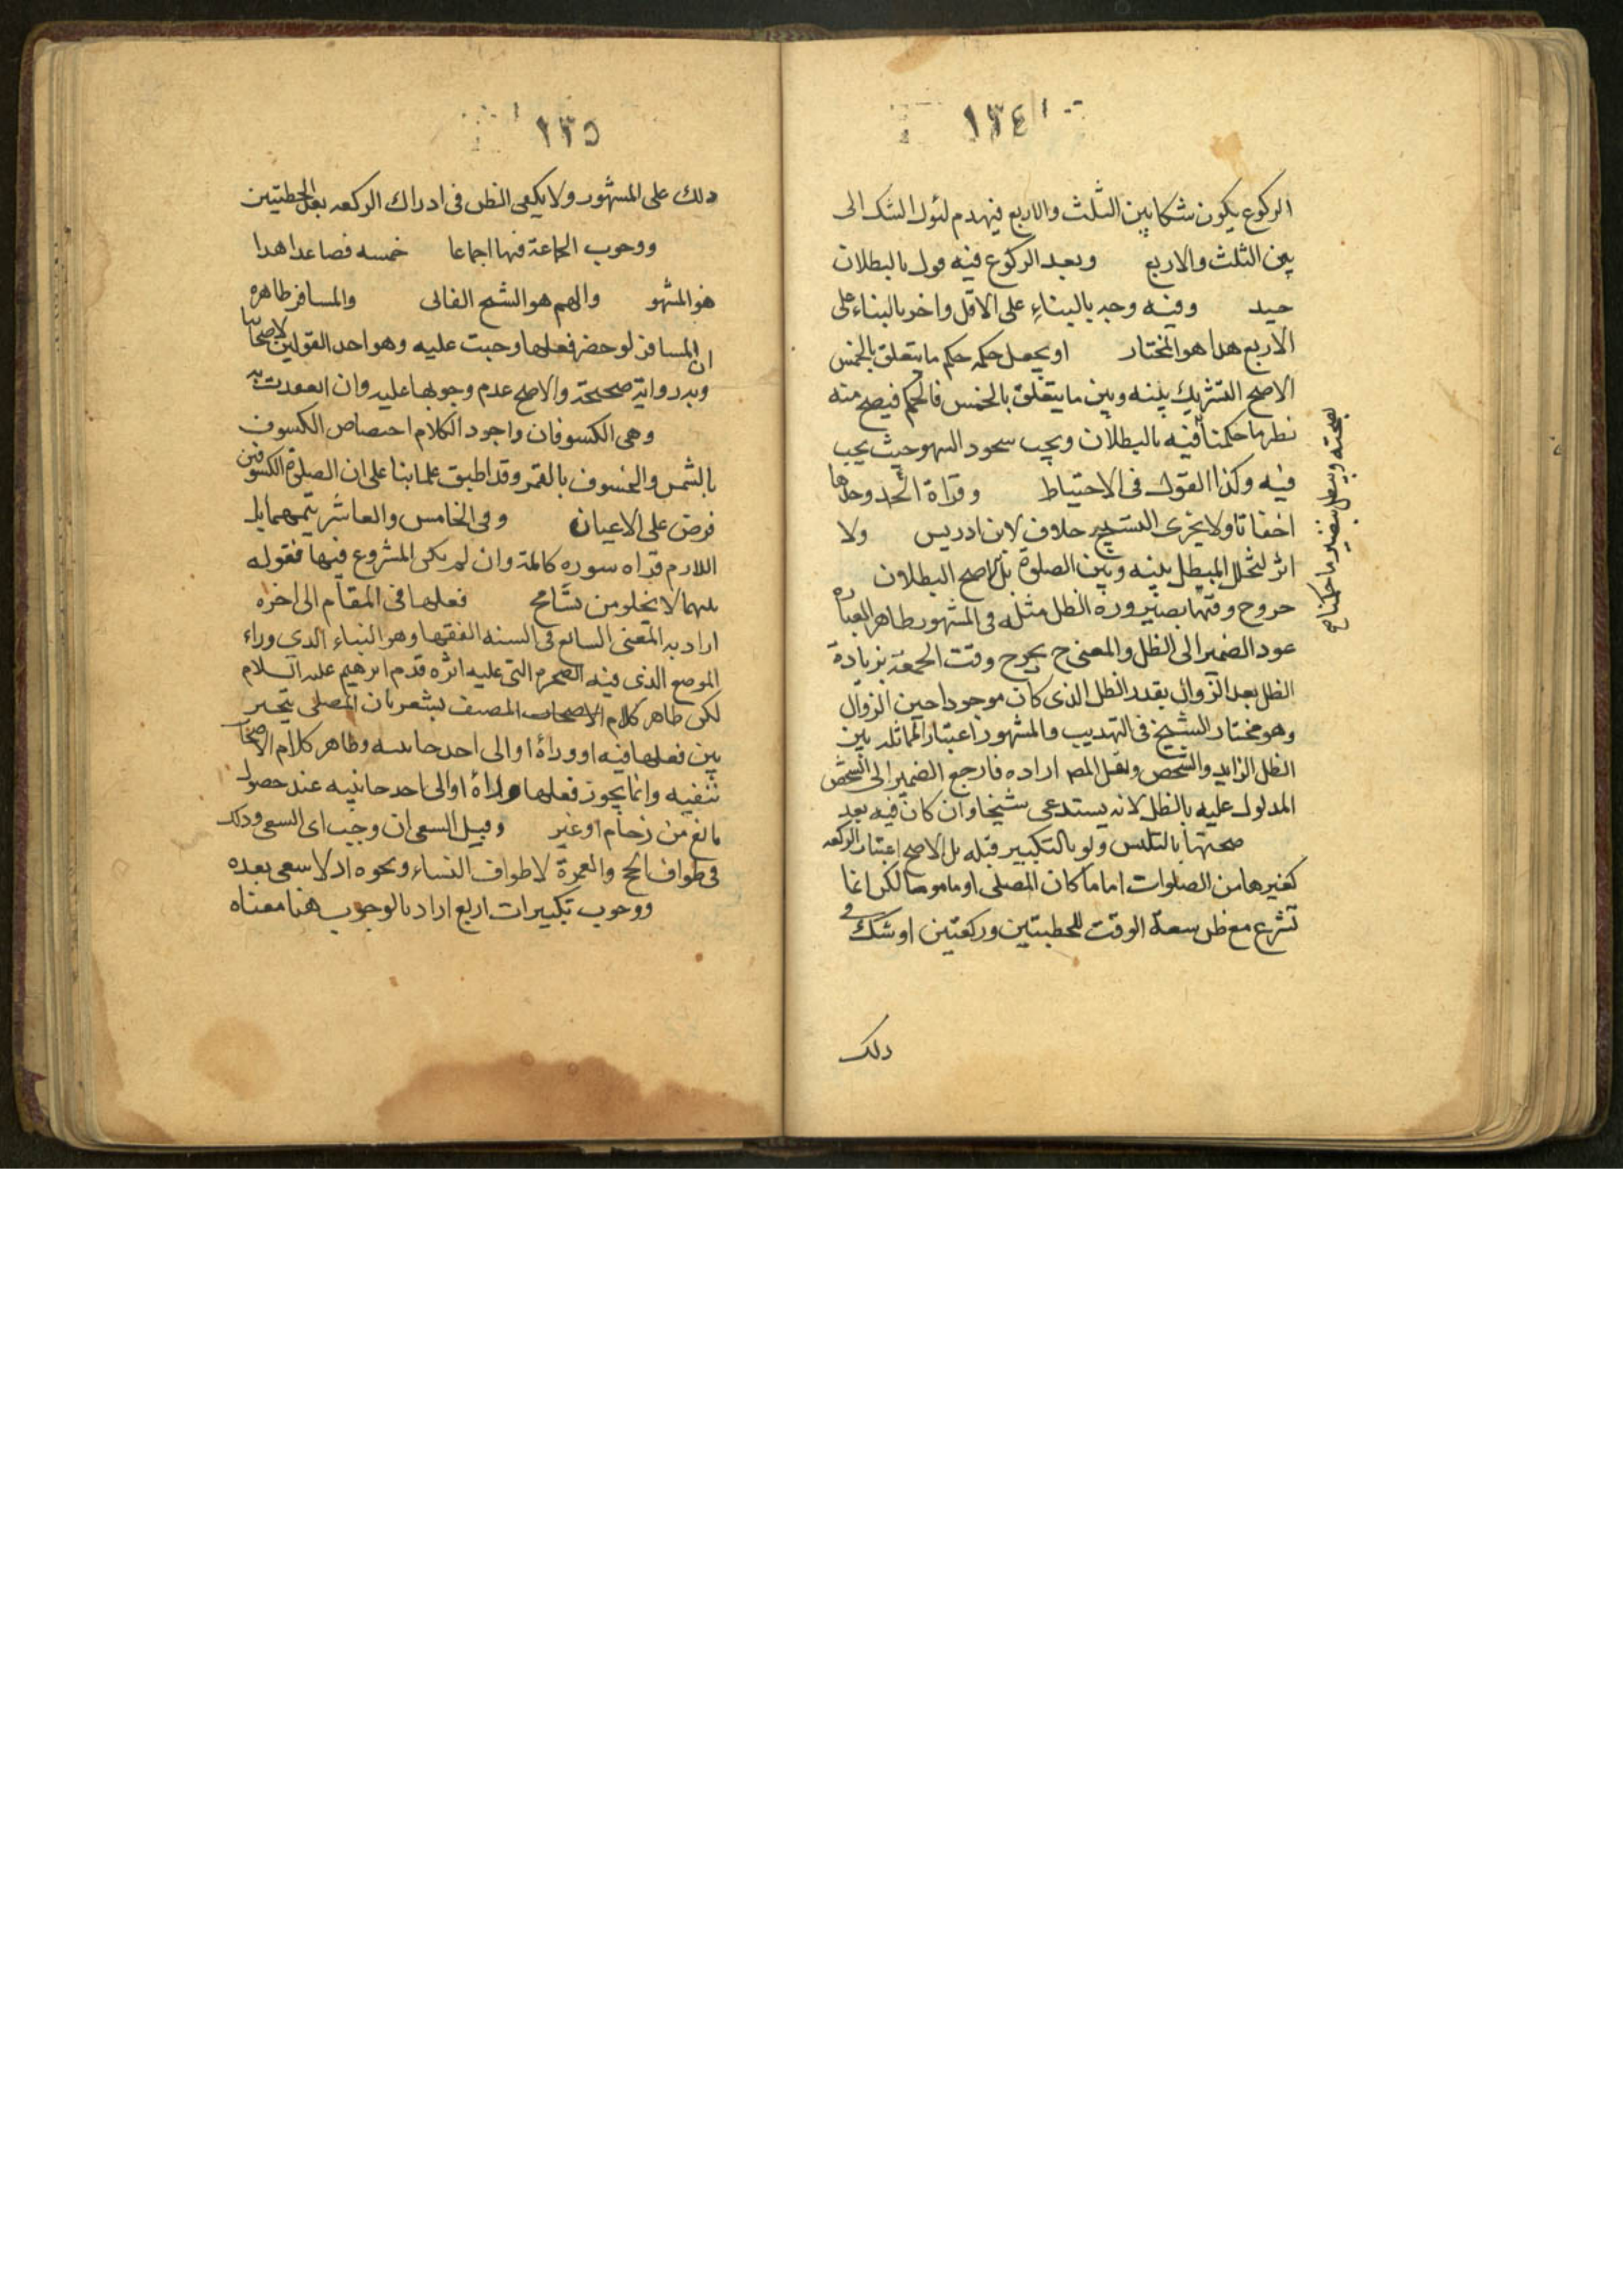 ١٣٤
الركوع يكون شكا بين الثلث والاربع فيهدم ليؤل الشك الى
بين الثلث والاربع وبعد الركوع فيه قول بالبطلان
جيد وفيه وجه بالبناء على الاقل واخر بالبناء على
الاربع هذا هو المختار او يجعل حكمه حكم ما يتعلق بالخمس
الاصح التشريك بينه وبين ما يتعلق بالخمس فالحكم فيصح منه
نظير ما حكمنا فيه بالبطلان ويجب سجود السهو حيث يجب
فيه وكذا القول في الاحتياط وقراة الحمد وحدها
اخفاتا ولا يجزى التسبيح خلاف لابن ادريس ولا
اثر لتخلل المبطل بينه وبين الصلوة بل الاصح البطلان
خروج وقتها بصيرورة الظل مثله في المشهور ظاهر العبارة
عود الضمير الى الظل والمعنى ح يخرج وقت الجمعة بزيادة
الظل بعد الزوال بقدر الظل الذى كان موجودا حين الزوال
وهو مختار الشيخ في التهذيب والمشهور اعتبار المماثلة بين
الظل الزايد والشخص ولعل المص اراده فارجع الضمير الى الشخص
المدلول عليه بالظل لانه يستدعى شيخا وان كان فيه بعد
صحتها بالتلبس ولو بالتكبير قبله بل الاصح اعتبار الركعه
كغيرها من الصلوات اماما كان المصلى او ماموما لكن انما
تشرع مع ظن سعة الوقت للخطبتين وركعتين او شك في
ذلك
١٣٥
ذلك على المشهور ولا يكفى الظن في ادراك الركعه بعد الخطبتين
ووجوب الجماعة فيها اجماعا خمسه فصاعدا هذا
هو المشهو والهم هو الشيخ الفانى والمسافر ظاهره
ان المسافر لو حضر فعلها وجبت عليه وهو احد القولين لاصحابنا
وبه رواية صحيحة والاصح عدم وجوبها عليه وان انعقدت به
وهى الكسوفان واجود الكلام اختصاص الكسوف
بالشمس والخسوف بالقمر وقد اطبق علمائنا على ان الصلوة الكسوفين
فرض على الاعيان وفى الخامس والعاشر يتمهما بل
اللازم قراه سوره كاملة وان لم يكن المشروع فيها فقوله
يتمهما لا يخلو من تسامح فعلها فى المقام الى اخره
اراد به المعنى الشايع في السنه الفقها وهو البناء الذى وراء
الموضع الذى فيه الصخرة التى عليه اثره قدم ابرهيم عليه السلام
لكن ظاهر كلام الاصحاب المصنف يشعر بان المصلى يتخير
بين فعلها فيه او وراءه او الى احد جانبيه وظاهر كلام الاصحاب
تنفيه وانما يجوز فعلها وراءه او الى احد جانبيه عند حصول
مانع من زحام او غير وقبل السعى ان وجب اى السعى وذلك
فى طواف الحج والعمرة لا طواف النساء ونحوه اذ لا سعى بعده
ووجوب تكبيرات اربع اراد بالوجوب هنا معناه